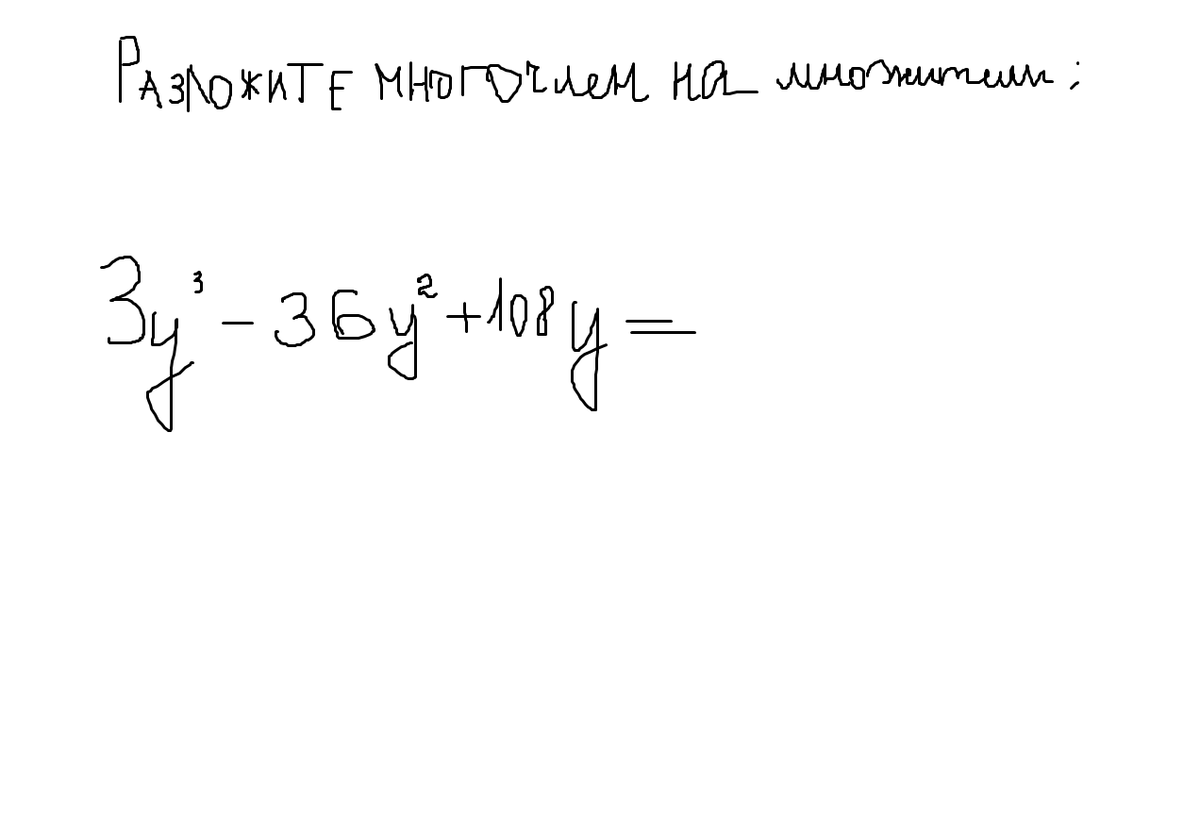 РАЗЛОЖИТЕ МНОГОЧлЕМ НА множители:
3y³ - 36y² + 108y =